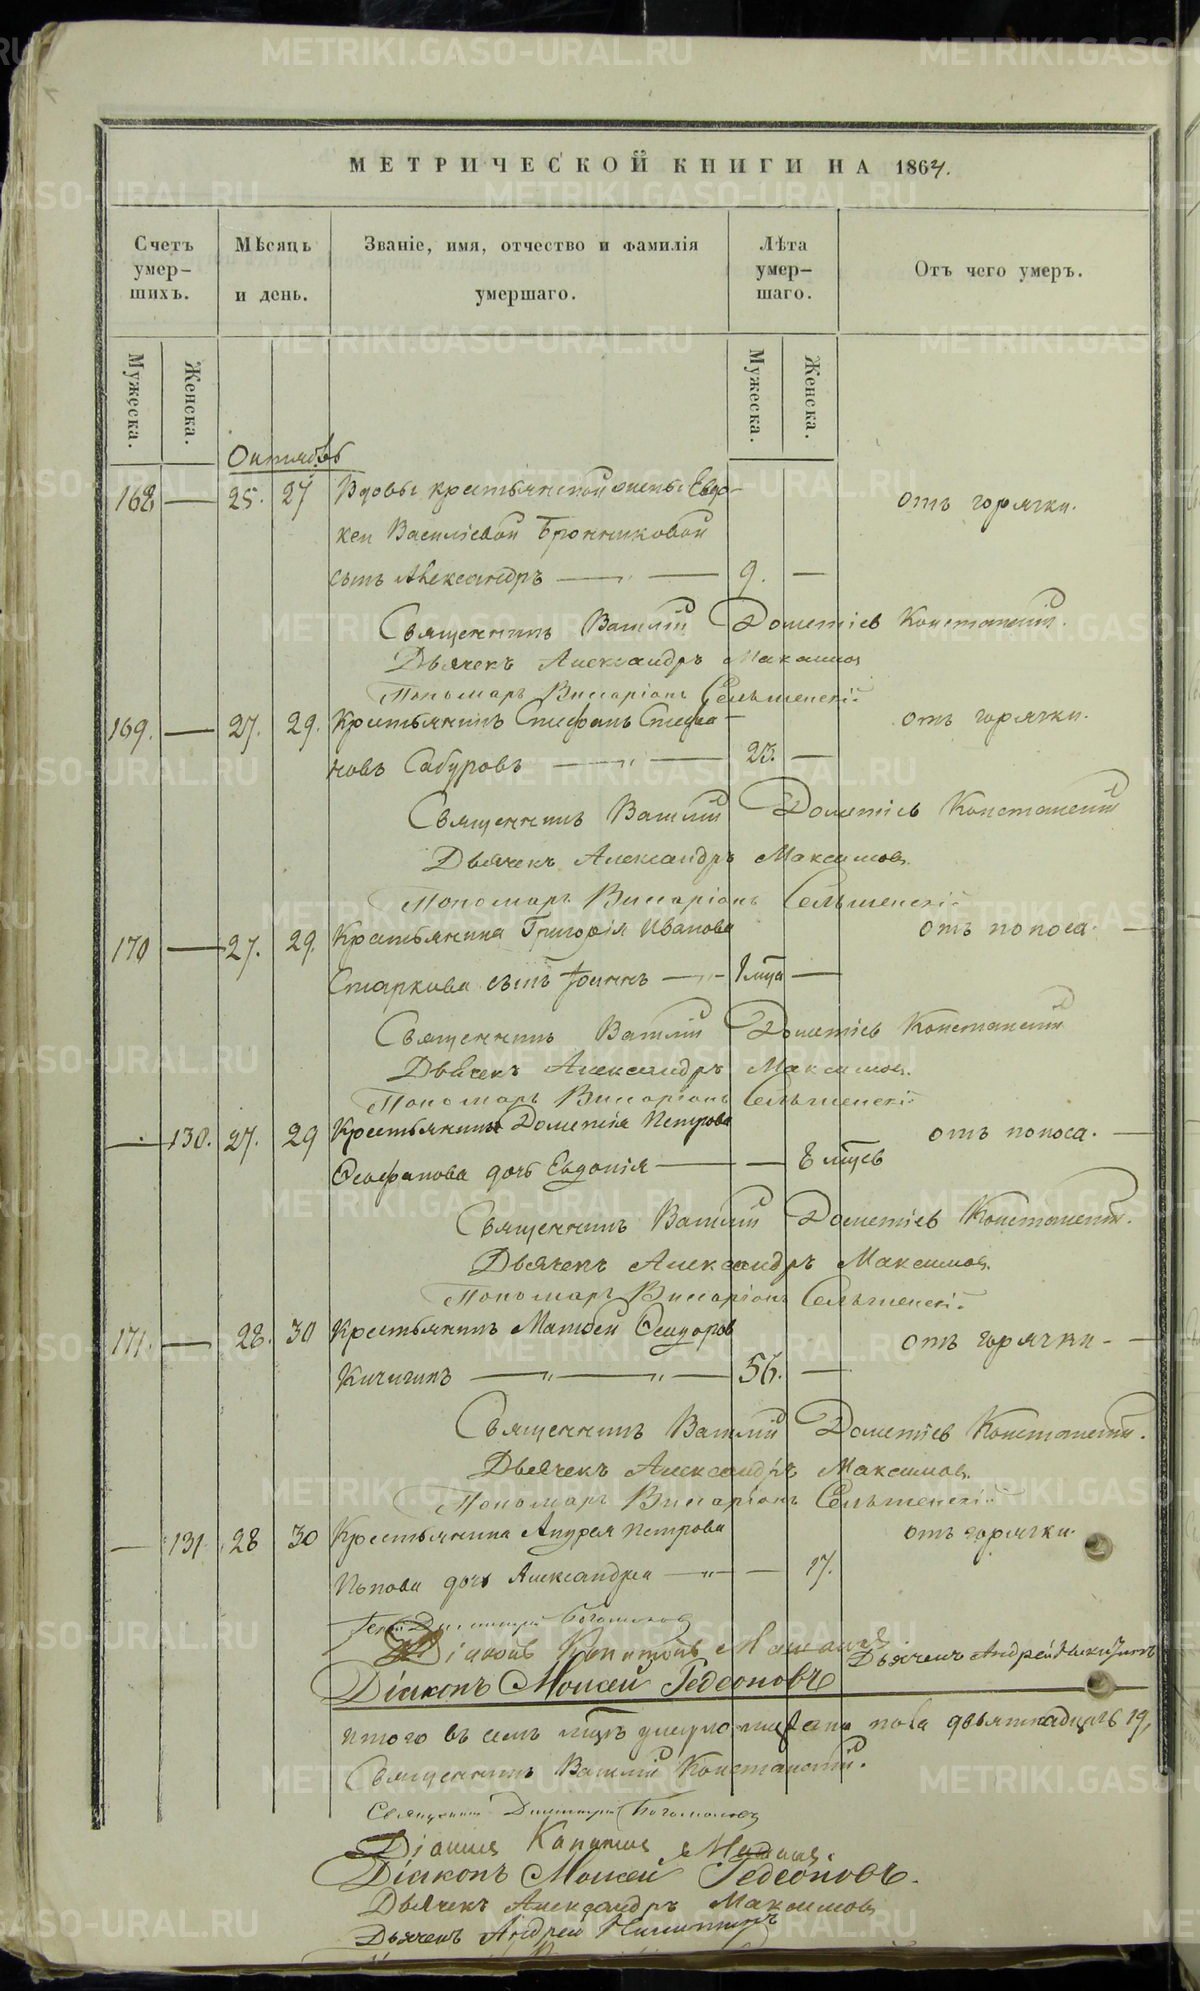 МЕТРИЧЕСКОЙ КНИГИ НА 1864.
Счетъ умер-
шихъ.
Мѣсяцъ
и день.
Званіе, имя, отчество и фамилія
умершаго.
Лѣта
умер-
шаго.
Отъ чего умеръ.
Мужеска.
Женска.
Мужеска.
Женска.
Октябрь
168 — 25. 27 Вдовы крестьянской жены Евдо- отъ горячки.
кеи Василіевой Бронниковой
сынъ Александръ — 9. —
Священникъ Василій Дометіевъ Констанскій.
Дьячекъ Александръ Максимов
Пономарь Виссаріонъ Сельменскій
169. — 27. 29. Крестьянинъ Стефанъ Стефа- отъ горячки.
новъ Сабуровъ — 23. —
Священникъ Василій Дометіевъ Констанскій
Дьячекъ Александръ Максимов.
Пономарь Виссаріонъ Сельменскій
170 — 27. 29. Крестьянина Григорія Иванова отъ поноса. —
Старкова сынъ Іоаннъ — 1 мца —
Священникъ Василій Дометіевъ Констанскій
Дьячекъ Александръ Максимов.
Пономарь Виссаріонъ Сельменскій
— 130. 27. 29 Крестьянина Дометія Петрова отъ поноса. —
Ѳеофанова дочь Евдокія — — 8 мцевъ
Священникъ Василій Дометіевъ Констанскій.
Дьячекъ Александръ Максимов.
Пономарь Виссаріонъ Сельменскій
171. — 28. 30 Крестьянинъ Матѳей Ѳедоров отъ горячки —
Кичигинъ — 56. —
Священникъ Василій Дометіевъ Констанскій.
Дьячекъ Александръ Максимов.
Пономарь Виссаріонъ Сельменскій
— 131 28 30 Крестьянина Андрея Петрова отъ горячки.
Попова дочь Александра — — 17.
Димитрій Богомолов
Діаконъ
Дьячекъ Андрей Никитинъ
Діаконъ Моисей Гедеоновъ
Итого въ семъ мцѣ умерло мужеска пола девятнадцать 19,
Священникъ Василій Констанскій.
Священникъ Димитрій Богомолов
Діакон Капитон
Діаконъ Моисей Гедеоновъ.
Дьячекъ Александръ Максимов
Дьячекъ Андрей Никитинъ
METRIKI.GASO-URAL.RU